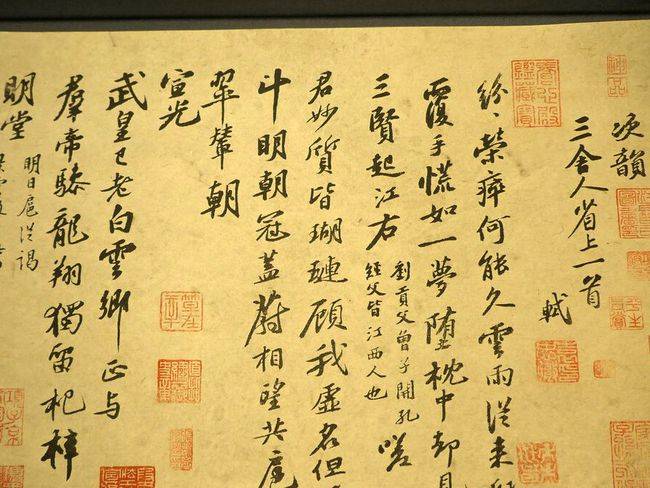 次韻
三舍人省上一首
軾
紛〻榮瘁何能久雲雨從来
覆手慌如一夢墮枕中却見
三賢起江右
劉貢父曾子開孔
經父皆江西人也
嗟
君妙質皆瑚璉顧我虛名但
斗明朝冠蓋蔚相望共扈
翠輦朝
宣光
武皇已老白雲鄉正与
羣帝驂龍翔獨留杞梓
明堂
明日扈從謁